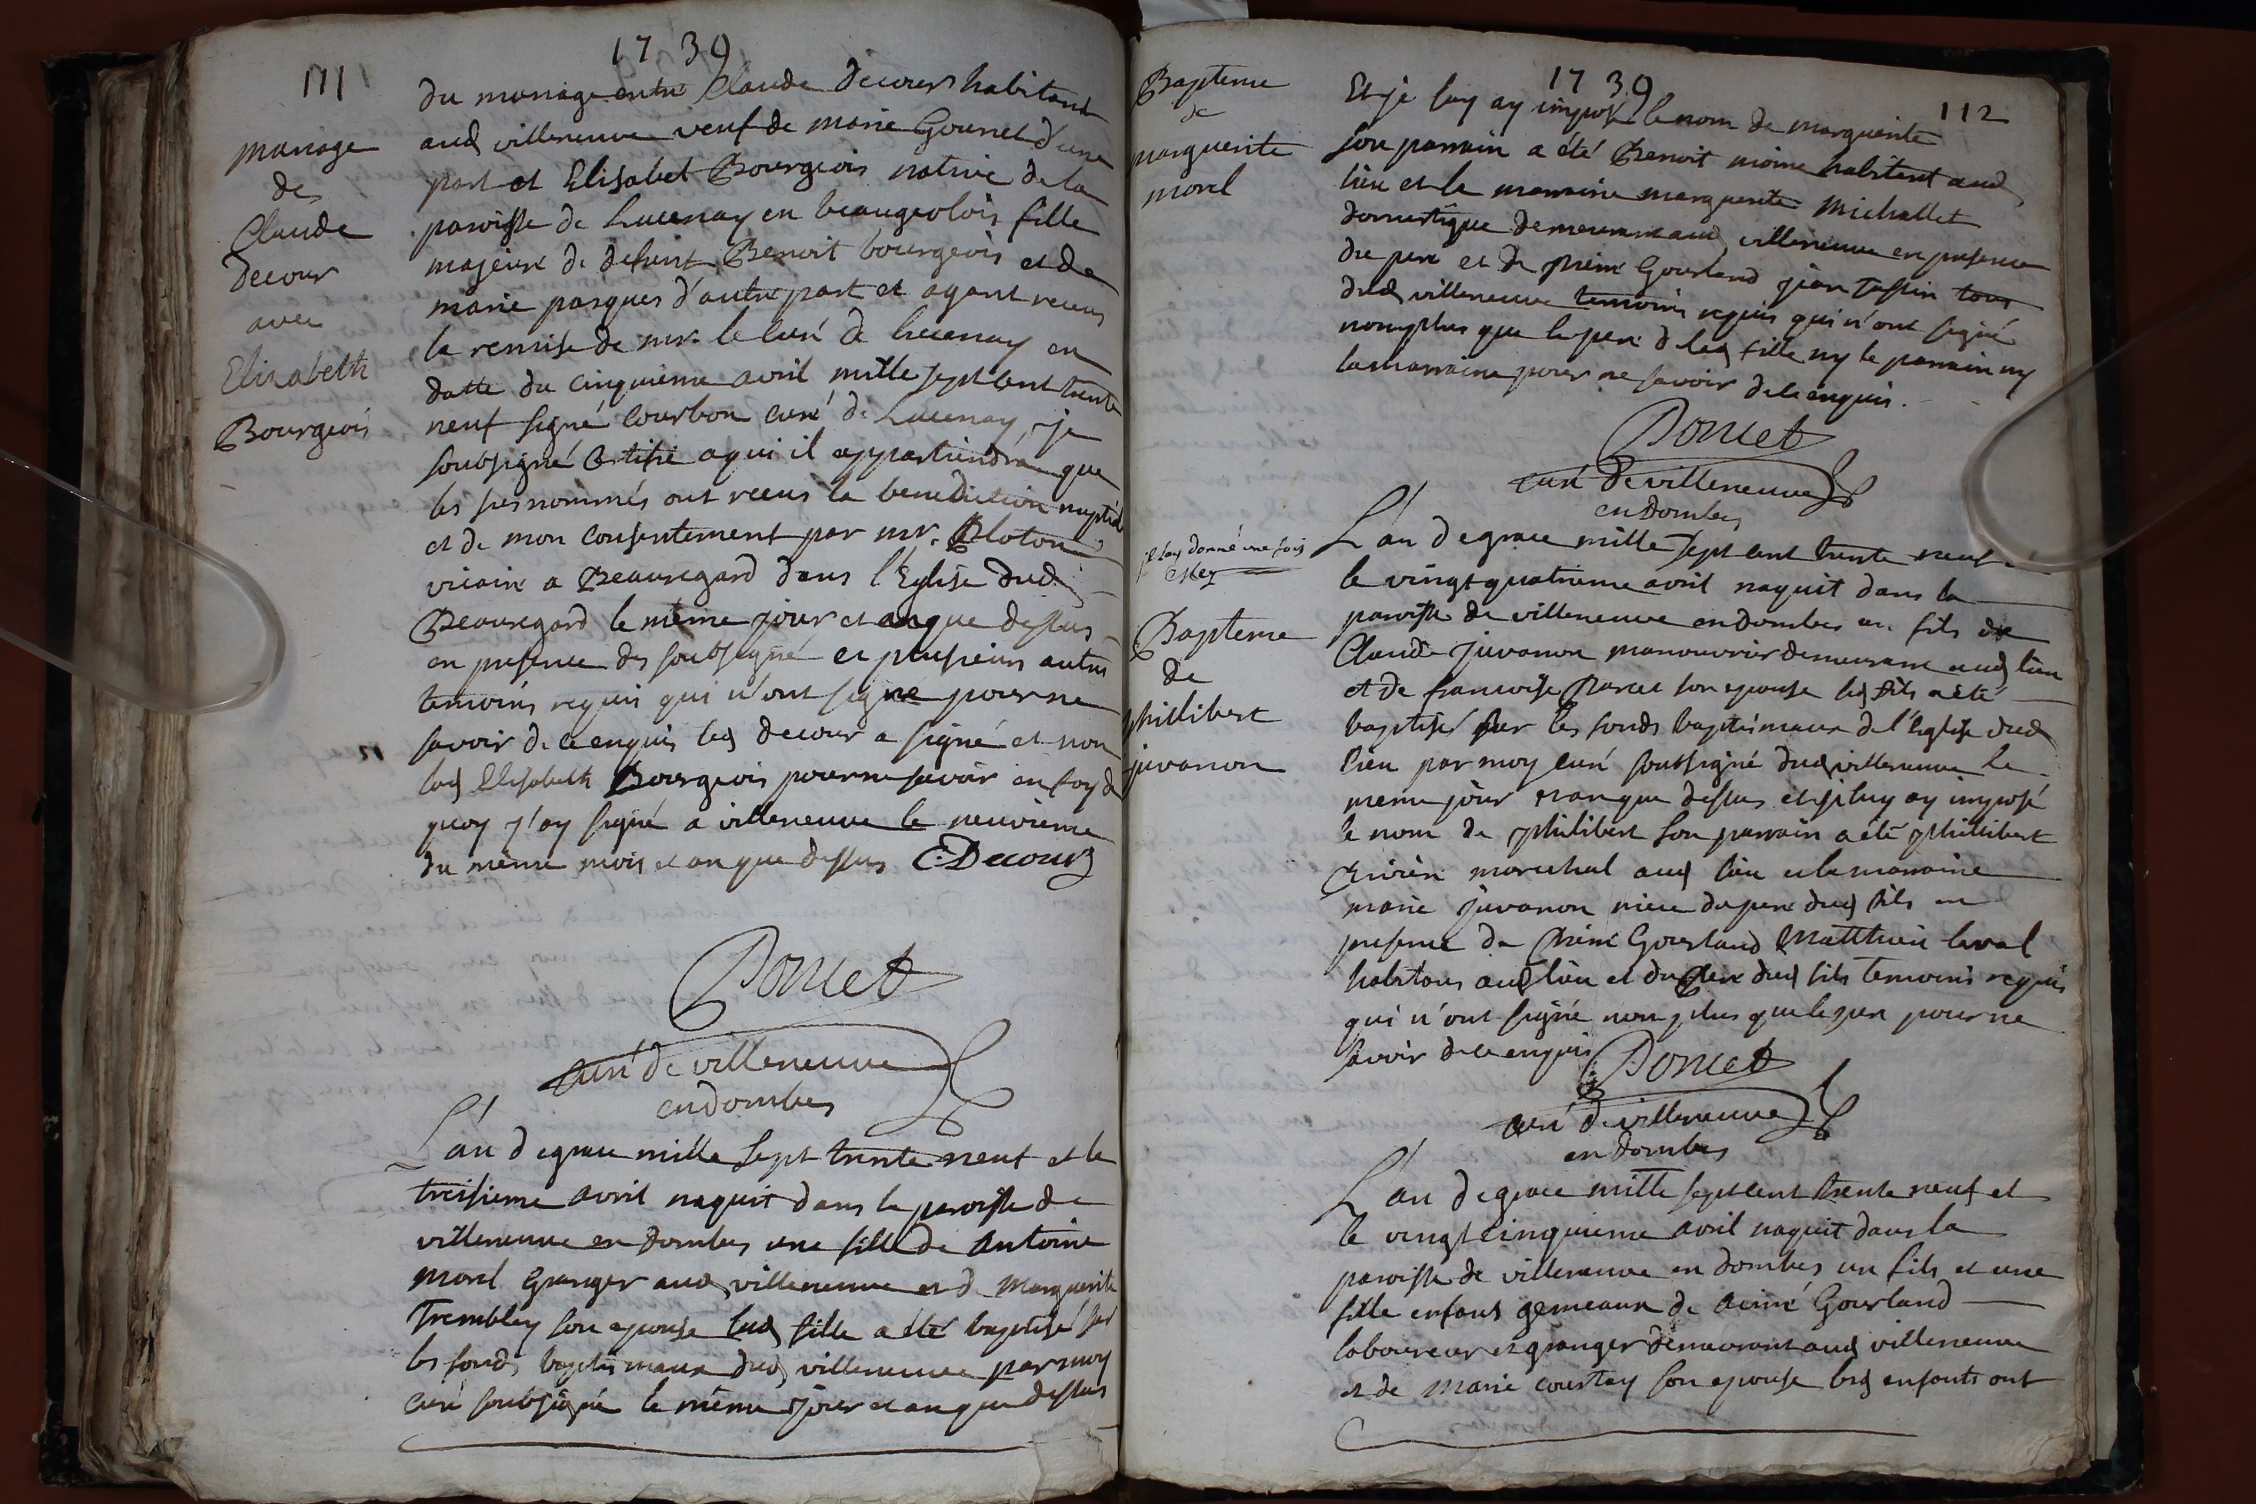 1739
111
mariage
de
Claude
decour
avec
Elizabeth
Bourgeois
du mariage entre Claude Decours habitant
aud villeneuve veuf de marie Gounet d'une
part et Elisabet Bourgeois native de la
paroisse de Lucenay en beaugeolois fille
majeure de defunt Benoit bourgeois et de
marie pasques d'autre part et ayant receus
la remise de mr. le curé de lucenay en
datte du cinquieme avril mille sept cent trente
neuf signé Courbon curé de Lucenay, je
soubsigné Certifie a qui il appartiendra que
les susnommés ont receus la benediction nuptiale
et de mon consentement par mr. Bloton
vicaire a Beauregard dans l'Eglise dud
Beauregard le même jour et an que dessus
en presence des soubsigné et plusieurs autres
temoins requis qui n'ont signé pour ne
savoir de ce enquis led decour a signé et non
lad Elisabeth Bourgeois pour ne savoir en foy de
quoy j'ay signé a villeneuve le neuvieme
du même mois et an que dessus C. Decourz
Poncet
curé de villeneuve
en dombes
L'an de grace mille sept trente neuf et le
treisieme avril naquit dans la paroisse de
villeneuve en dombes une fille de Antoine
morel Granger aud villeneuve et de Marguerite
Trembley son epouse lad fille a été baptisé sur
les fonds baptismaux dud villeneuve par moy
curé soubsigné le même jour et an que dessus
1739
112
Bapteme
de
marguerite
morel
Et je luy ay imposé le nom de marguerite
son parrain a été Benoit moine habitant aud
lieu et la marraine marguerite Michallet
domestique demeurant aud villeneuve en presence
du pere et de Gourland jean tous
dud villeneuve temoins requis qui n'ont signé
non plus que le pere de lad fille ny le parrain ny
la marraine pour ne savoir de ce enquis.
Poncet
curé de villeneuve
en Dombes
donné une fois
Bapteme
de
phillibert
juvanon
L'an de grace mille sept cent trente neuf
le vingt quatrieme avril naquit dans la
paroisse de villeneuve en dombes un fils de
Claude juvanon manouvrier demeurant aud lieu
et de francoise son epouse led fils a été
baptisé sur les fonds baptismaux de l'Eglise dud
lieu par moy curé soussigné dud villeneuve le
meme jour et an que dessus et je luy ay imposé
le nom de philibert son parrain a été phillibert
marechal aud lieu et la marraine
marie juvanon niece du pere dud fils en
presence de Gourland Matthieu laval
habitans aud lieu et du pere dud fils temoins requis
qui n'ont signé non plus que le pere pour ne
savoir de ce enquis
Poncet
curé de villeneuve
en Dombes
L'an de grace mille sept cent trente neuf et
le vingt cinquieme avril naquit dans la
paroisse de villeneuve en dombes un fils et une
fille enfans gemeaux de Aimé Gourland
laboureur et granger demeurant aud villeneuve
et de marie courtay son epouse lesd enfants ont